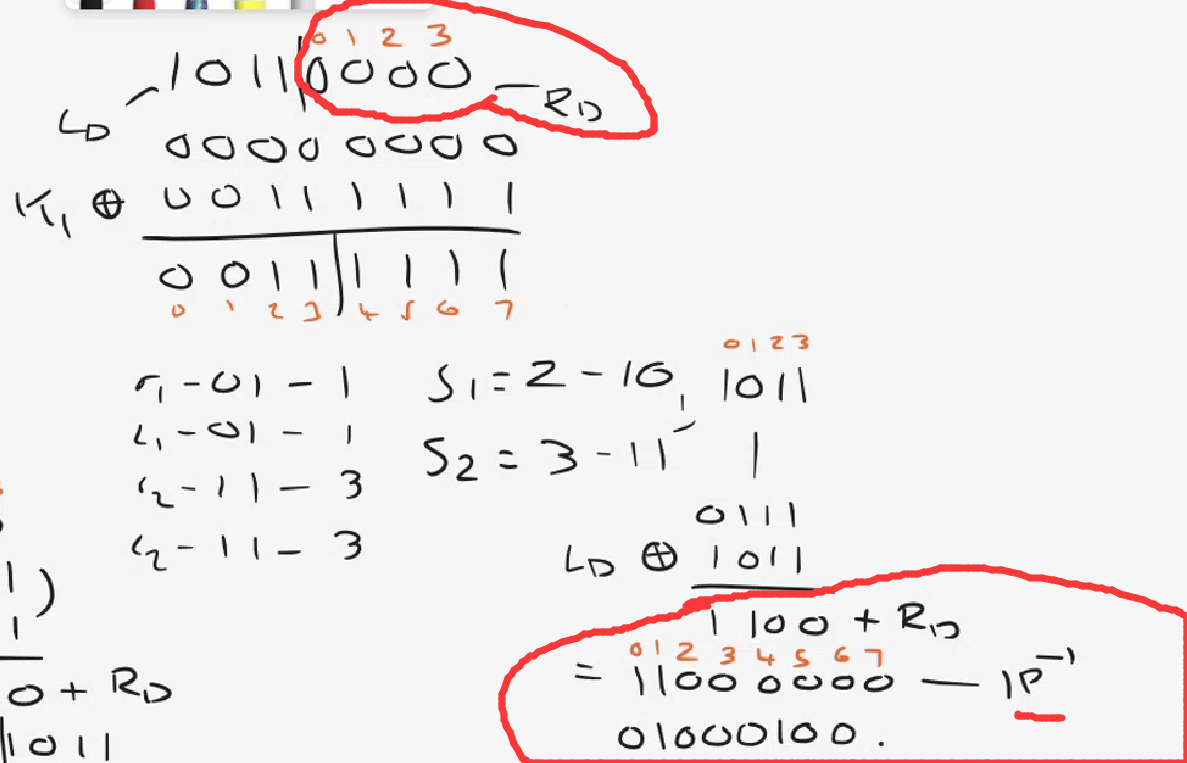 0 1 2 3
1011|0000 — RD
LD
0000 0000
K1 ⊕ 0011 1111
0011|1111
0 1 2 3 4 5 6 7
r1 - 01 - 1
c1 - 01 - 1
r2 - 11 - 3
c2 - 11 - 3
S1 = 2 - 10
S2 = 3 - 11
0 1 2 3
1011
1
0111
LD ⊕ 1011
1100 + RD
0 1 2 3 4 5 6 7
= 1100 0000 — IP⁻¹
01000100.
1)
1
0 + RD
|1011